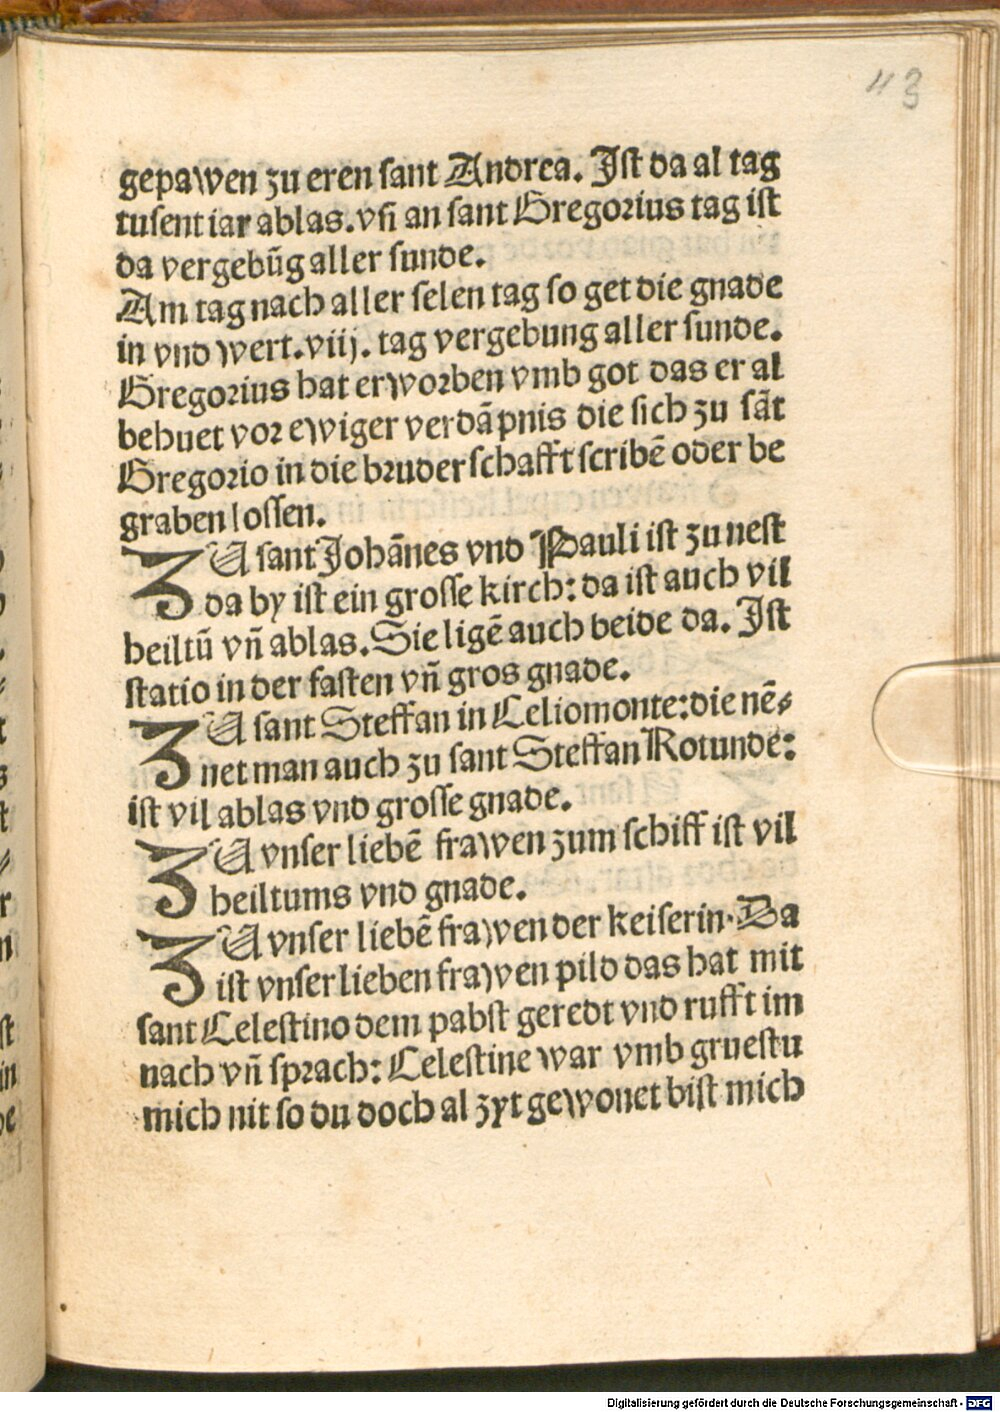 43
gepawen zu eren sant Andrea. Ist da al tag
tusent iar ablas. vn̄ an sant Gregorius tag ist
da vergebūg aller sunde.
Am tag nach aller selen tag so get die gnade
in vnd wert. viij. tag vergebung aller sunde.
Gregorius hat erworben vmb got das er al
behuet vor ewiger verdāpnis die sich zu sāt
Gregorio in die bruderschafft scribē oder be
graben lossen.
ZU sant Johānes vnd Pauli ist zu nest
da by ist ein grosse kirch: da ist auch vil
heiltū vn̄ ablas. Sie ligē auch beide da. Ist
statio in der fasten vn̄ gros gnade.
ZU sant Steffan in Celiomonte: die nē⸗
net man auch zu sant Steffan Rotunde:
ist vil ablas vnd grosse gnade.
ZU vnser liebē frawen zum schiff ist vil
heiltums vnd gnade.
ZU vnser liebē frawen der keiserin. Da
ist vnser lieben frawen pild das hat mit
sant Celestino dem pabst geredt vnd rufft im
nach vn̄ sprach: Celestine war vmb gruestu
mich nit so du doch al zyt gewonet bist mich
Digitalisierung gefördert durch die Deutsche Forschungsgemeinschaft - DFG